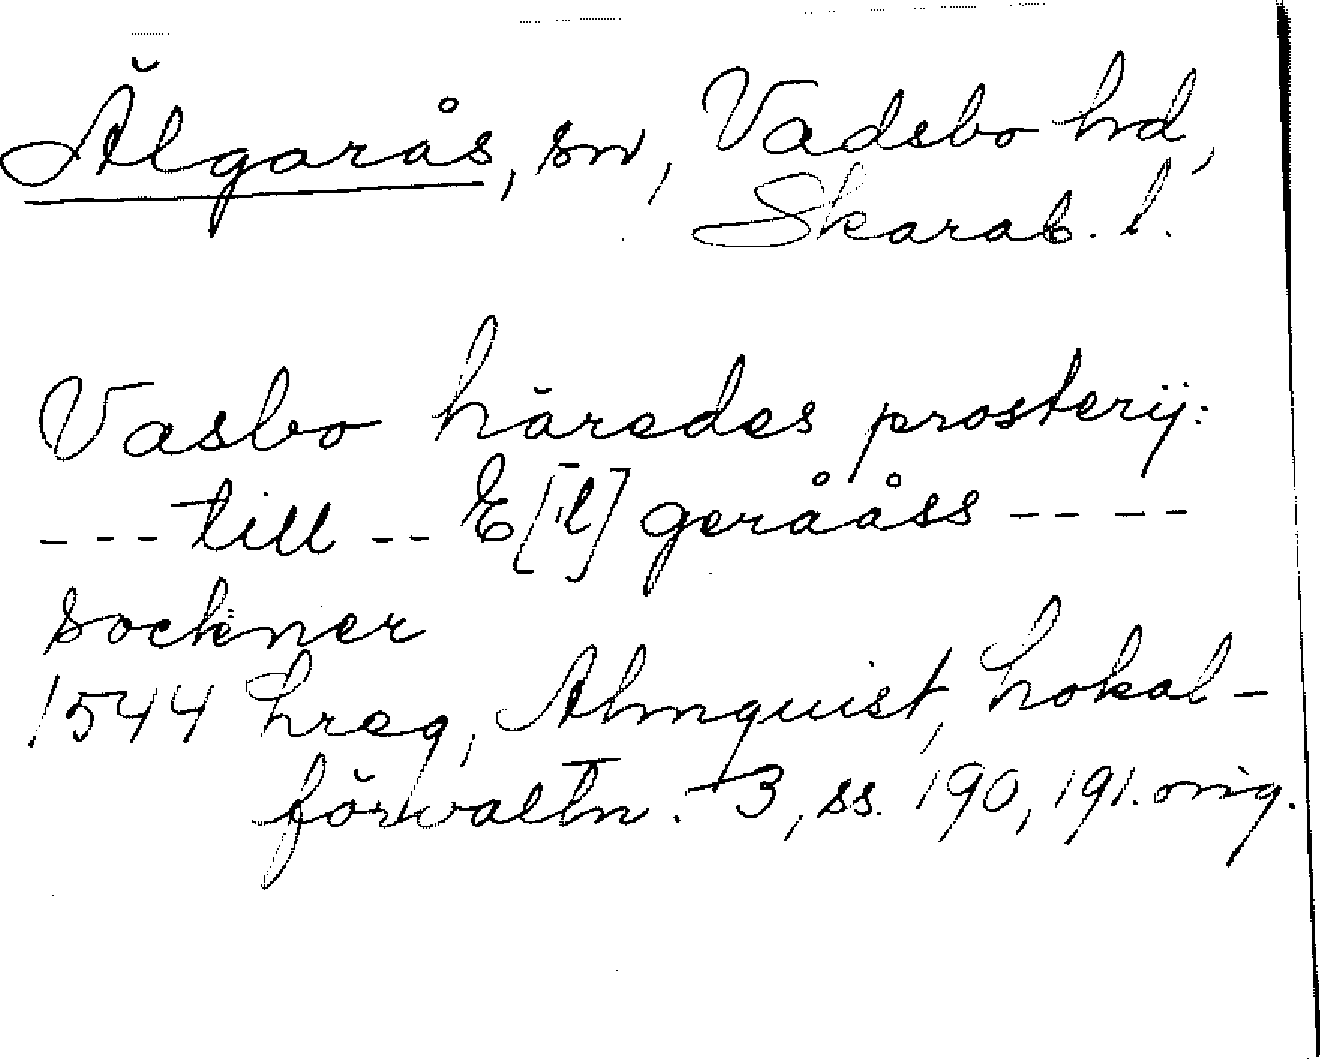 Älgarås, sn, Vadsbo hd,
Skarab. l.
Vasbo häredes prosterij:
--- till -- E[l]geråås ----
sockner
1544 Lreg, Almquist, Lokal-
förvaltn. 3, ss. 190, 191. orig.